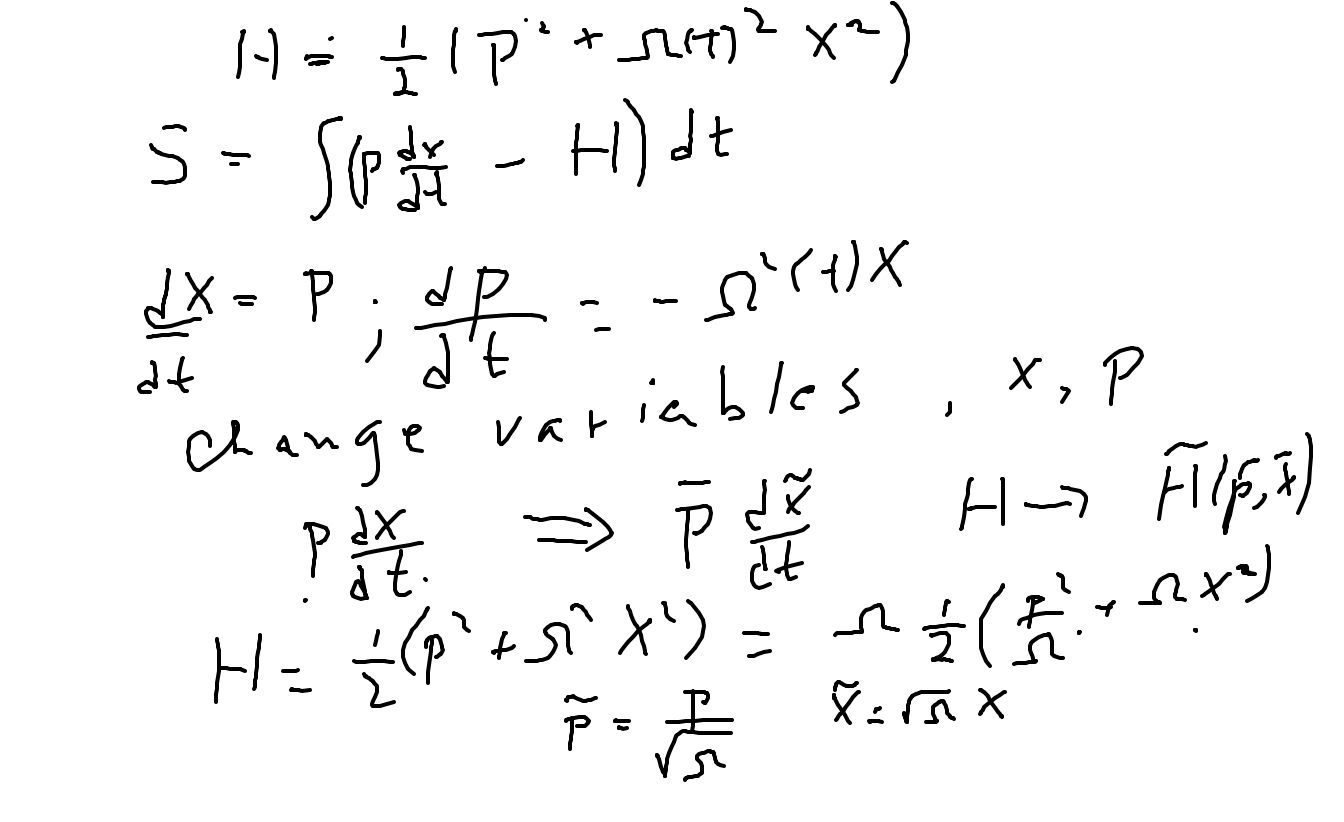 H = 1/2 (P² + Ω(t)² X²)
S = ∫(P dx/dt − H) dt
dX/dt = P ; dP/dt = − Ω²(t) X
change variables , x, P
P dX/dt. ⇒ P̄ dx̃/dt H → H̃(p̃, x̃)
H = 1/2 (p² + Ω² X²) = Ω 1/2 (P²/Ω + Ω X²)
p̃ = P/√Ω x̃ = √Ω X